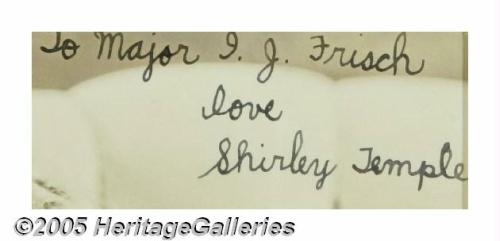 To Major I. J. Frisch
love
Shirley Temple
©2005 HeritageGalleries